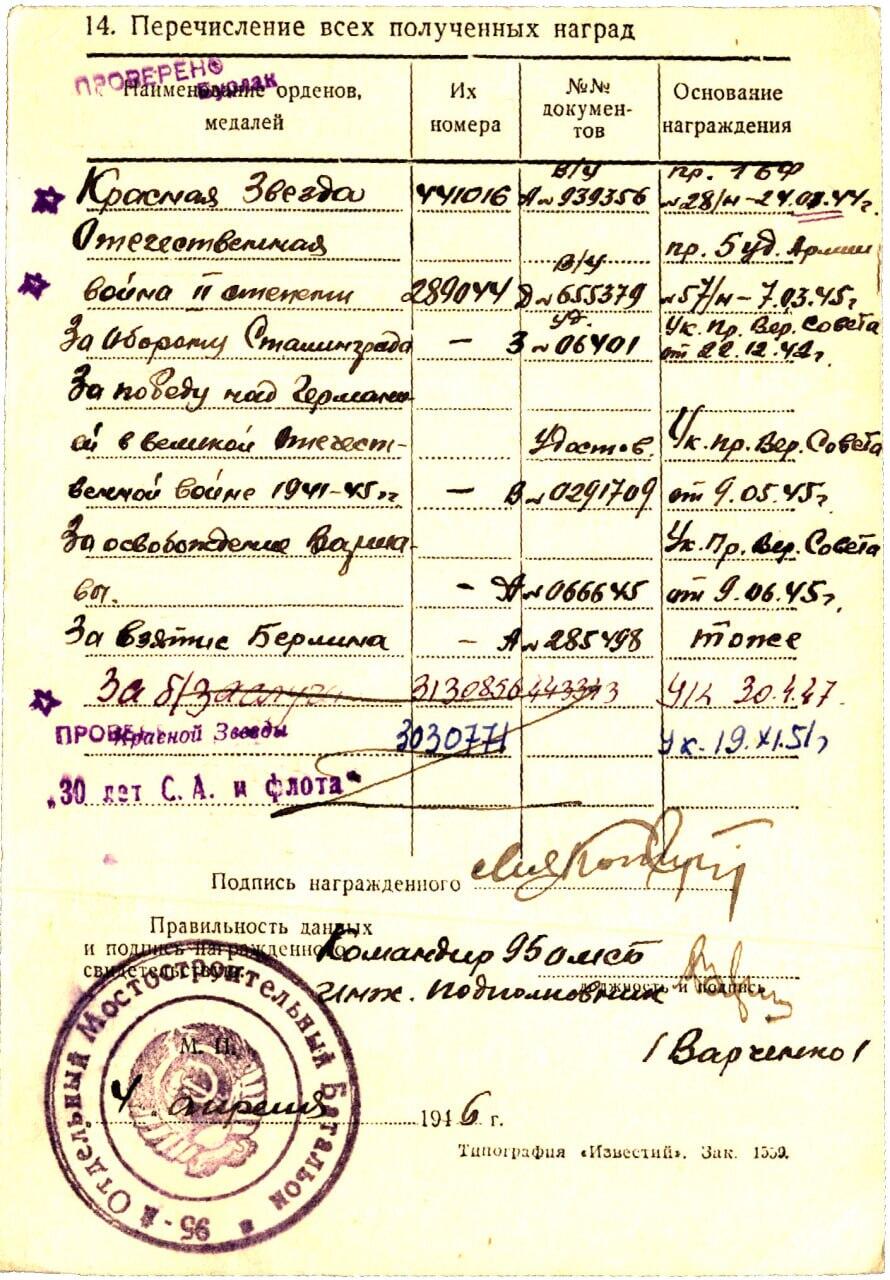 14. Перечисление всех полученных наград
ПРОВЕРЕНО
Бурлак
Наименование орденов, медалей
Их номера
№№ документов
Основание награждения
Красная Звезда 441016 В/У А № 939356 пр. 1 БФ № 28/н – 24.01.44 г.
Отечественная пр. 5 уд. Армии
война II степени 289044 В/У Д № 655379 № 57/н – 7.03.45 г
За Оборону Сталинграда – Уд. З № 06401 Ук. Пр. Вер. Совета от 22.12.42 г.
За победу над Германи-
ей в великой Отечест- Удостов. Ук. Пр. Вер. Совета
венной войне 1941-45 г.г. – В № 0291709 от 9.05.45 г
За освобождение Варша- Ук. Пр. Вер. Совета
вы. – А № 066645 от 9.06.45 г.
За взятие Берлина – А № 285498 то же
За б/заслуги 3130856 443343 Ук 30.4.47
ПРОВЕРЕ
Красной Звезды 3030771 Ук. 19.XI.51 г
„30 лет С. А. и флота"
Подпись награжденного
Правильность данных
и подпись награжденного
свидетельствую.
Командир 95 омстб
Инж. Подполковник
должность и подпись
/Варченко/
М. П.
4. апреля 1946 г.
95-й Отдельный Мостостроительный Батальон
Типография «Известий». Зак. 1559.